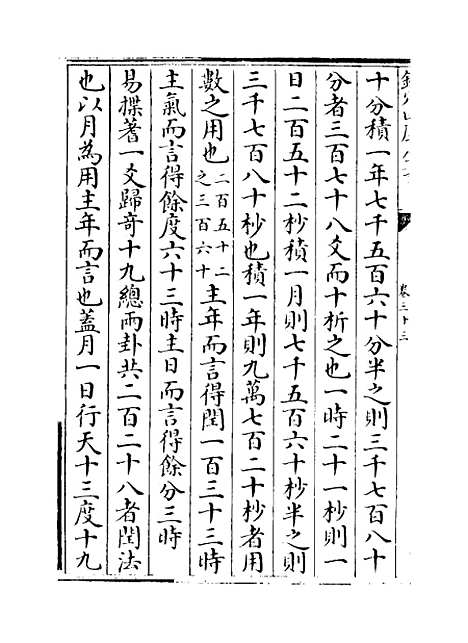 十分積一年七千五百六十分半之則三千七百八十
分者三百七十八爻而十析之也一時二十一秒則一
日二百五十二秒積一月則七千五百六十秒半之則
三千七百八十秒也積一年則九萬七百二十秒者用
數之用也二百五十二之三百六十主年而言得閏一百三十三時
主氣而言得餘度六十三時主日而言得餘分三時
易揲蓍一爻歸奇十九總兩卦共二百二十八者閏法
也以月為用主年而言也蓋月一日行天十三度十九
卷三十三